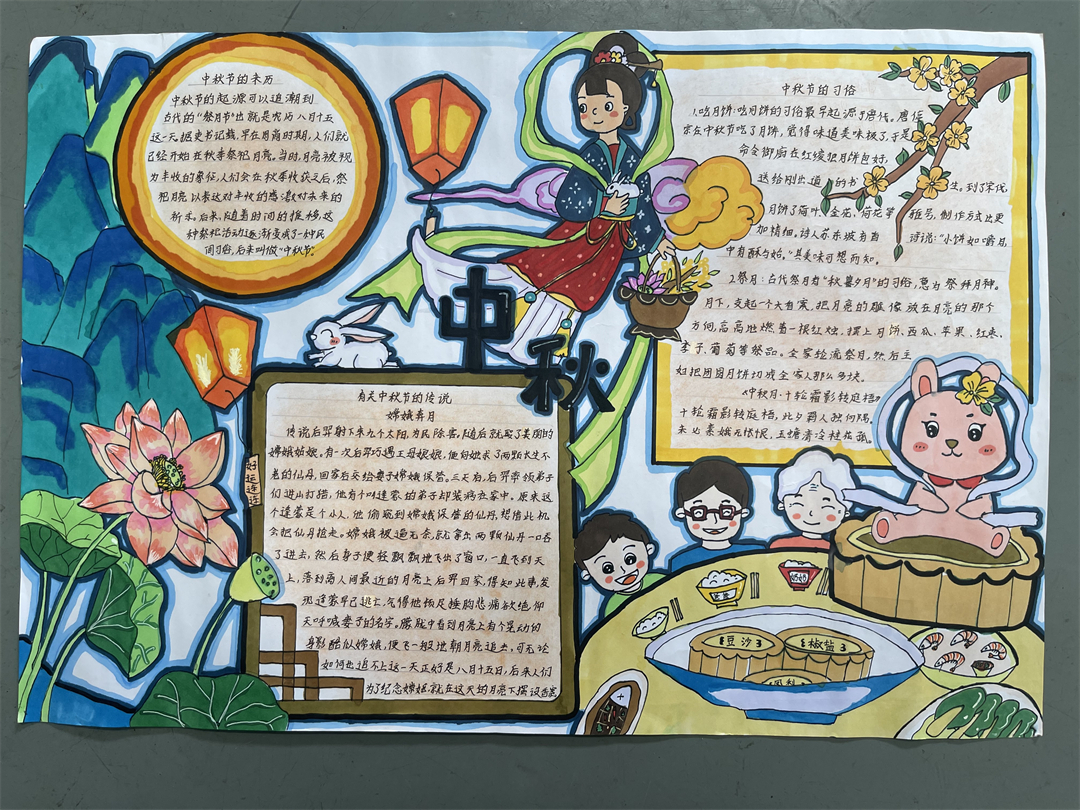 中秋节的来历
中秋节的起源可以追溯到
古代的“祭月节”也就是农历八月十五
这一天。据史书记载,早在周商时期,人们就
已经开始在秋季祭祀月亮。当时,月亮被视
为丰收的象征,人们会在秋季收获之后,祭
祀月亮,以表达对丰收的感激对未来的
祈求。后来,随着时间的推移,这
种祭祀活动逐渐变成了一种民
间习俗,后来叫做“中秋节”。
中秋
中秋节的习俗
1.吃月饼:吃月饼的习俗最早起源于唐代。唐
京在中秋节吃了月饼,觉得味道美味极了,于是
命令御厨在红绫把月饼包好,
送给刚出道的书生。到了宋代,
月饼了荷叶、金花、荷花等雅号,制作方式也更
加精细。诗人苏东坡有首诗说:“小饼如嚼月,
中有酥与饴。”其美味可想而知。
2.祭月:古代祭月有“秋暮夕月”的习俗,意为祭拜月神。
月下,支起一个大香案,把月亮的雕像放在月亮的那个
方向,高高地燃着一根红烛,摆上月饼、西瓜、苹果、红枣、
李子、葡萄等祭品。全家轮流祭月,然后主
妇把团圆月饼切成全家人那么多块。
《中秋月·十轮霜影转庭梧》
十轮霜影转庭梧,此夕羁人独向隅。
未必素娥无怅恨,玉蟾清冷桂花孤。
有关中秋节的传说
嫦娥奔月
传说后羿射下来九个太阳,为民除害。随后就娶了美丽的
嫦娥姑娘。有一次后羿巧遇王母娘娘,他向她求了两颗长生不
老的仙丹,回家后交给妻子嫦娥保管。三天后,后羿带领弟子
们进山打猎,他有个叫逢蒙的弟子却装病在家中。原来这
个逢蒙是个小人,他偷窥到嫦娥保管的仙丹,想借此机
会把仙丹抢走。嫦娥被逼无奈,就拿出两颗仙丹一口吞
了进去,然后身子便轻飘飘地飞出了窗口,一直飞到天
上,落到离人间最近的月亮上后羿回家,得知此事,发
现逢蒙早已逃亡,气得他顿足捶胸悲痛欲绝仰
天呼喊妻子的名字。朦胧中看到月亮上有个晃动的
身影酷似嫦娥,便飞一般地朝月亮追去,可无论
如何也追不上这一天正好是八月十五日,后来人们
为了纪念嫦娥,就在这天的月亮下摆设香案
好运连连
豆沙
椒盐